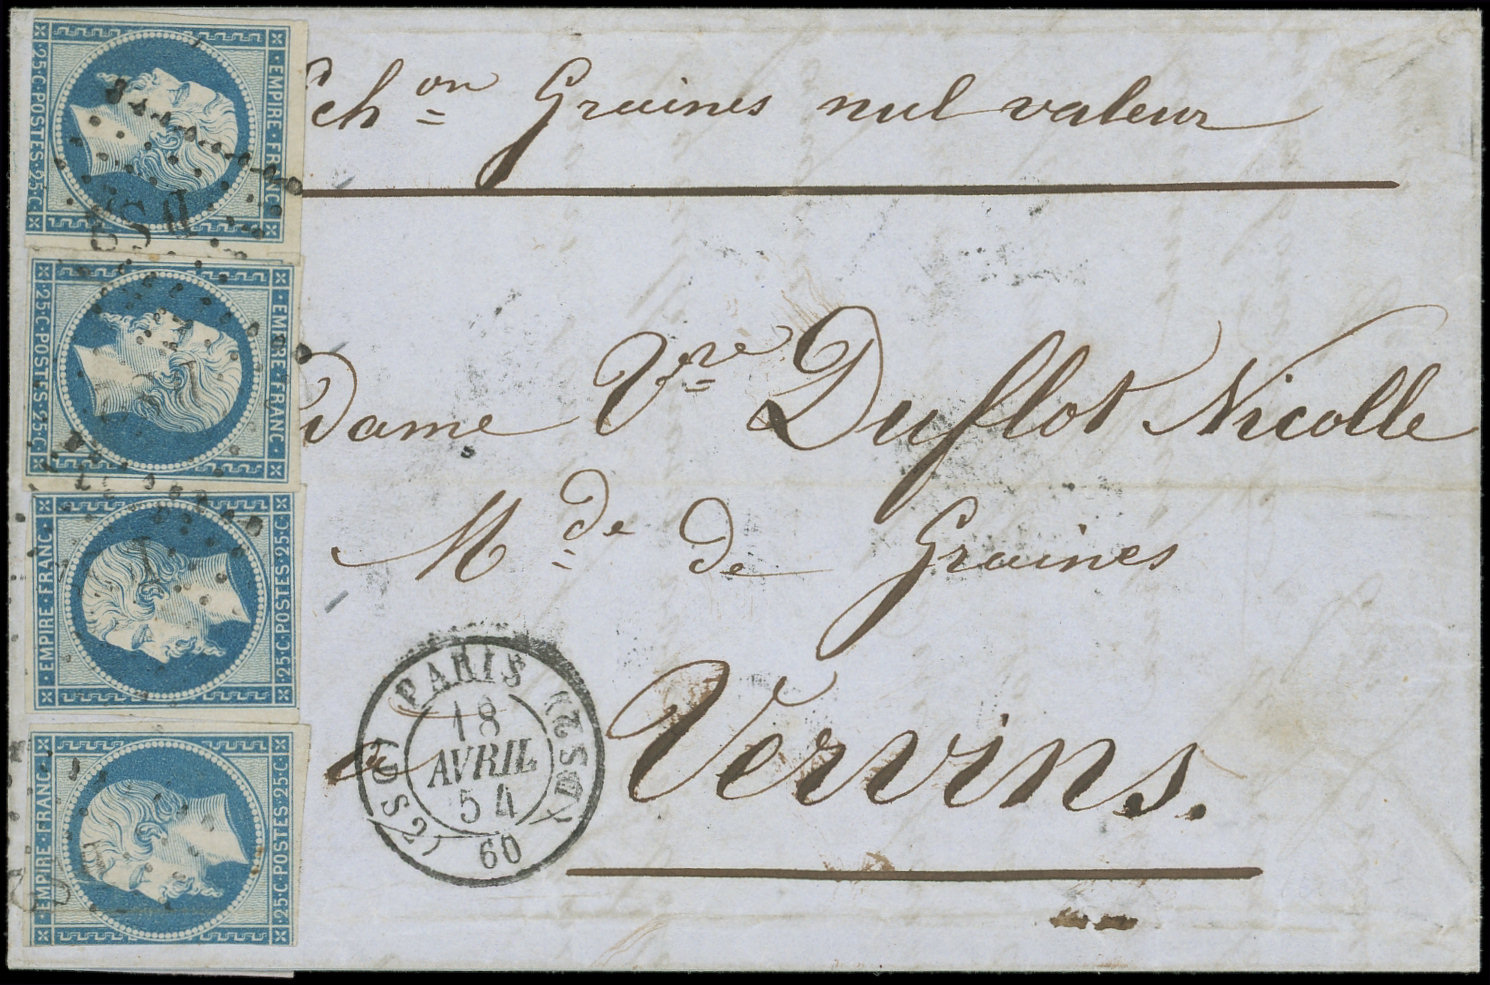 Ech^on Graines nul valeur
dame V^ve Duflot Nicolle
M^de de Graines
a Vervins.
PARIS (DS2) 60 (DS2)
18
AVRIL
54
EMPIRE·FRANC·
25·C·POSTES·25·C
EMPIRE·FRANC·
25·C·POSTES·25·C
EMPIRE·FRANC·
25·C·POSTES·25·C
EMPIRE·FRANC·
25·C·POSTES·25·C
DS2